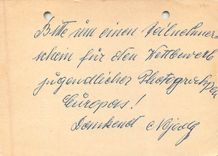 Bitte um einen Teilnehmer
schein für den Wettbewerb
jugendlicher Photographen
Europas!
Dankend